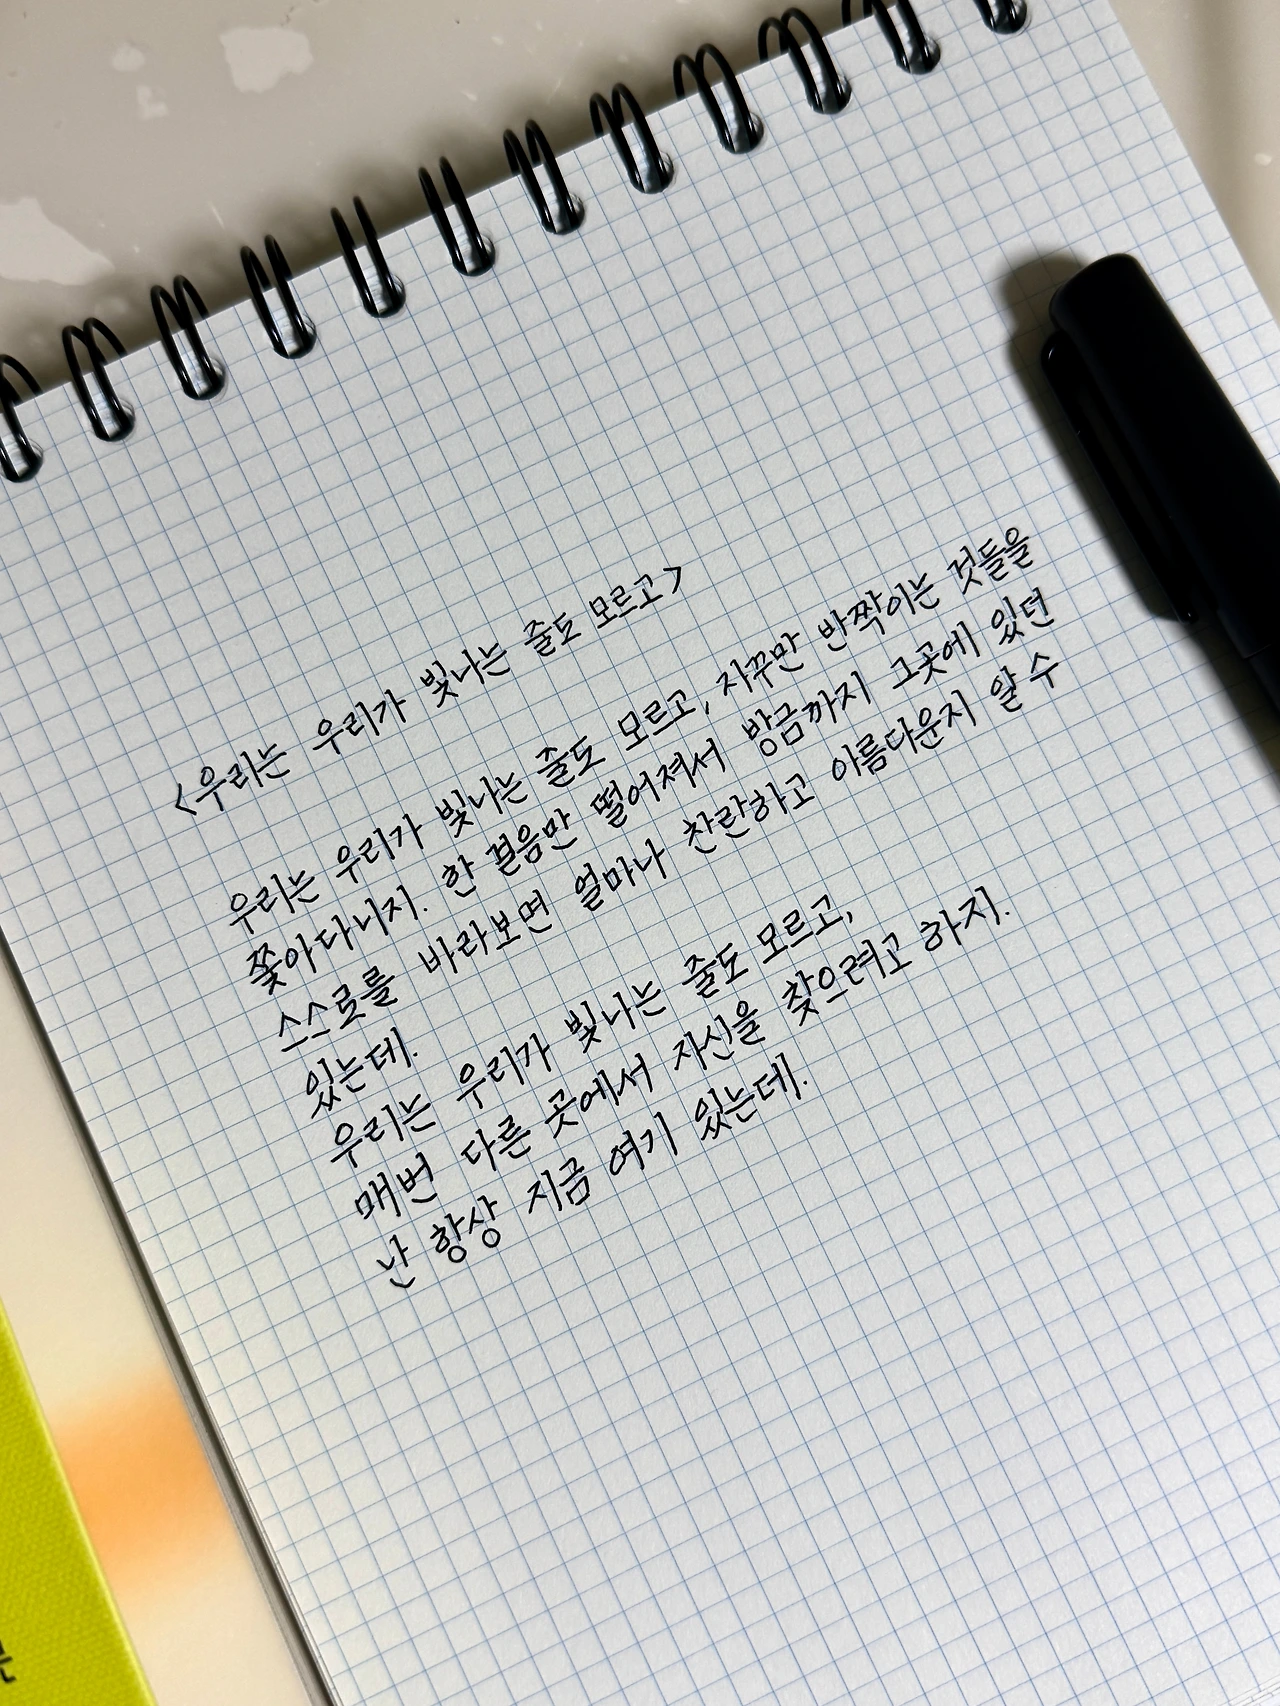 <우리는 우리가 빛나는 줄도 모르고>
우리는 우리가 빛나는 줄도 모르고, 자꾸만 반짝이는 것들을
쫓아다니지. 한 걸음만 떨어져서 방금까지 그곳에 있던
스스로를 바라보면 얼마나 찬란하고 아름다운지 알 수
있는데.
우리는 우리가 빛나는 줄도 모르고,
매번 다른 곳에서 자신을 찾으려고 하지.
난 항상 지금 여기 있는데.